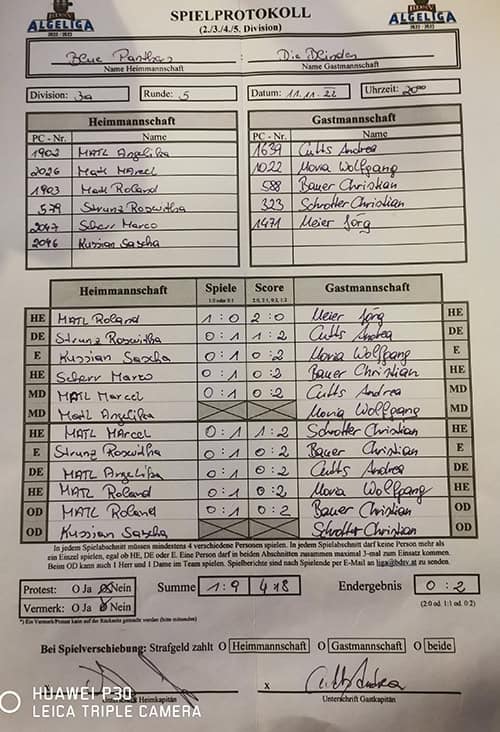 BDSV
ALGELIGA
2022 / 2023
SPIELPROTOKOLL
(2./3./4./5. Division)
BDSV
ALGELIGA
2022 / 2023
Blue Panthers Die Blinden
Name Heimmannschaft Name Gastmannschaft
Division: 3a Runde: 5 Datum: 11.11.22 Uhrzeit: 20⁰⁰
Heimmannschaft Gastmannschaft
PC - Nr. Name PC - Nr. Name
1902 MATL Angelika 1639 Cutts Andrea
2026 Matl Marcel 1022 Mona Wolfgang
1903 Matl Roland 588 Bauer Christian
579 Strunz Roswitha 323 Schrotter Christian
2047 Scherr Marco 1471 Meier Jörg
2046 Kussian Sascha
Heimmannschaft Spiele Score Gastmannschaft
1:0 oder 0:1 2:0, 2:1, 0:2, 1:2
HE MATL Roland 1:0 2:0 Meier Jörg HE
DE Strunz Roswitha 0:1 1:2 Cutts Andrea DE
E Kussian Sascha 0:1 0:2 Mona Wolfgang E
HE Scherr Marco 0:1 0:2 Bauer Christian HE
MD MATL Marcel 0:1 0:2 Cutts Andrea MD
MD Matl Angelika Mona Wolfgang MD
HE MATL MArcel 0:1 1:2 Schrotter Christian HE
E Strunz Roswitha 0:1 0:2 Bauer Christian E
DE MATL Angelika 0:1 0:2 Cutts Andrea DE
HE MATL Roland 0:1 0:2 Mona Wolfgang HE
OD MATL Roland 0:1 0:2 Bauer Christian OD
OD Kussian Sascha Schrotter Christian OD
In jedem Spielabschnitt müssen mindestens 4 verschiedene Personen spielen. In jedem Spielabschnitt darf keine Person mehr als
ein Einzel spielen, egal ob HE, DE oder E. Eine Person darf in beiden Abschnitten zusammen maximal 3-mal zum Einsatz kommen.
Beim OD kann auch 1 Herr und 1 Dame im Team spielen. Spielberichte sind nach Spielende per E-Mail an liga@bdsv.at zu senden.
Protest: O Ja O Nein Summe 1:9 4:18 Endergebnis 0:2
Vermerk: O Ja O Nein (2:0 od. 1:1 od. 0:2)
*) Ein Vermerk/Protest kann auf der Rückseite getätigt werden (bitte mitsenden)
Bei Spielverschiebung: Strafgeld zahlt O Heimmannschaft O Gastmannschaft O beide
x x Cutts Andrea
Unterschrift Heimkapitän Unterschrift Gastkapitän
HUAWEI P30
LEICA TRIPLE CAMERA